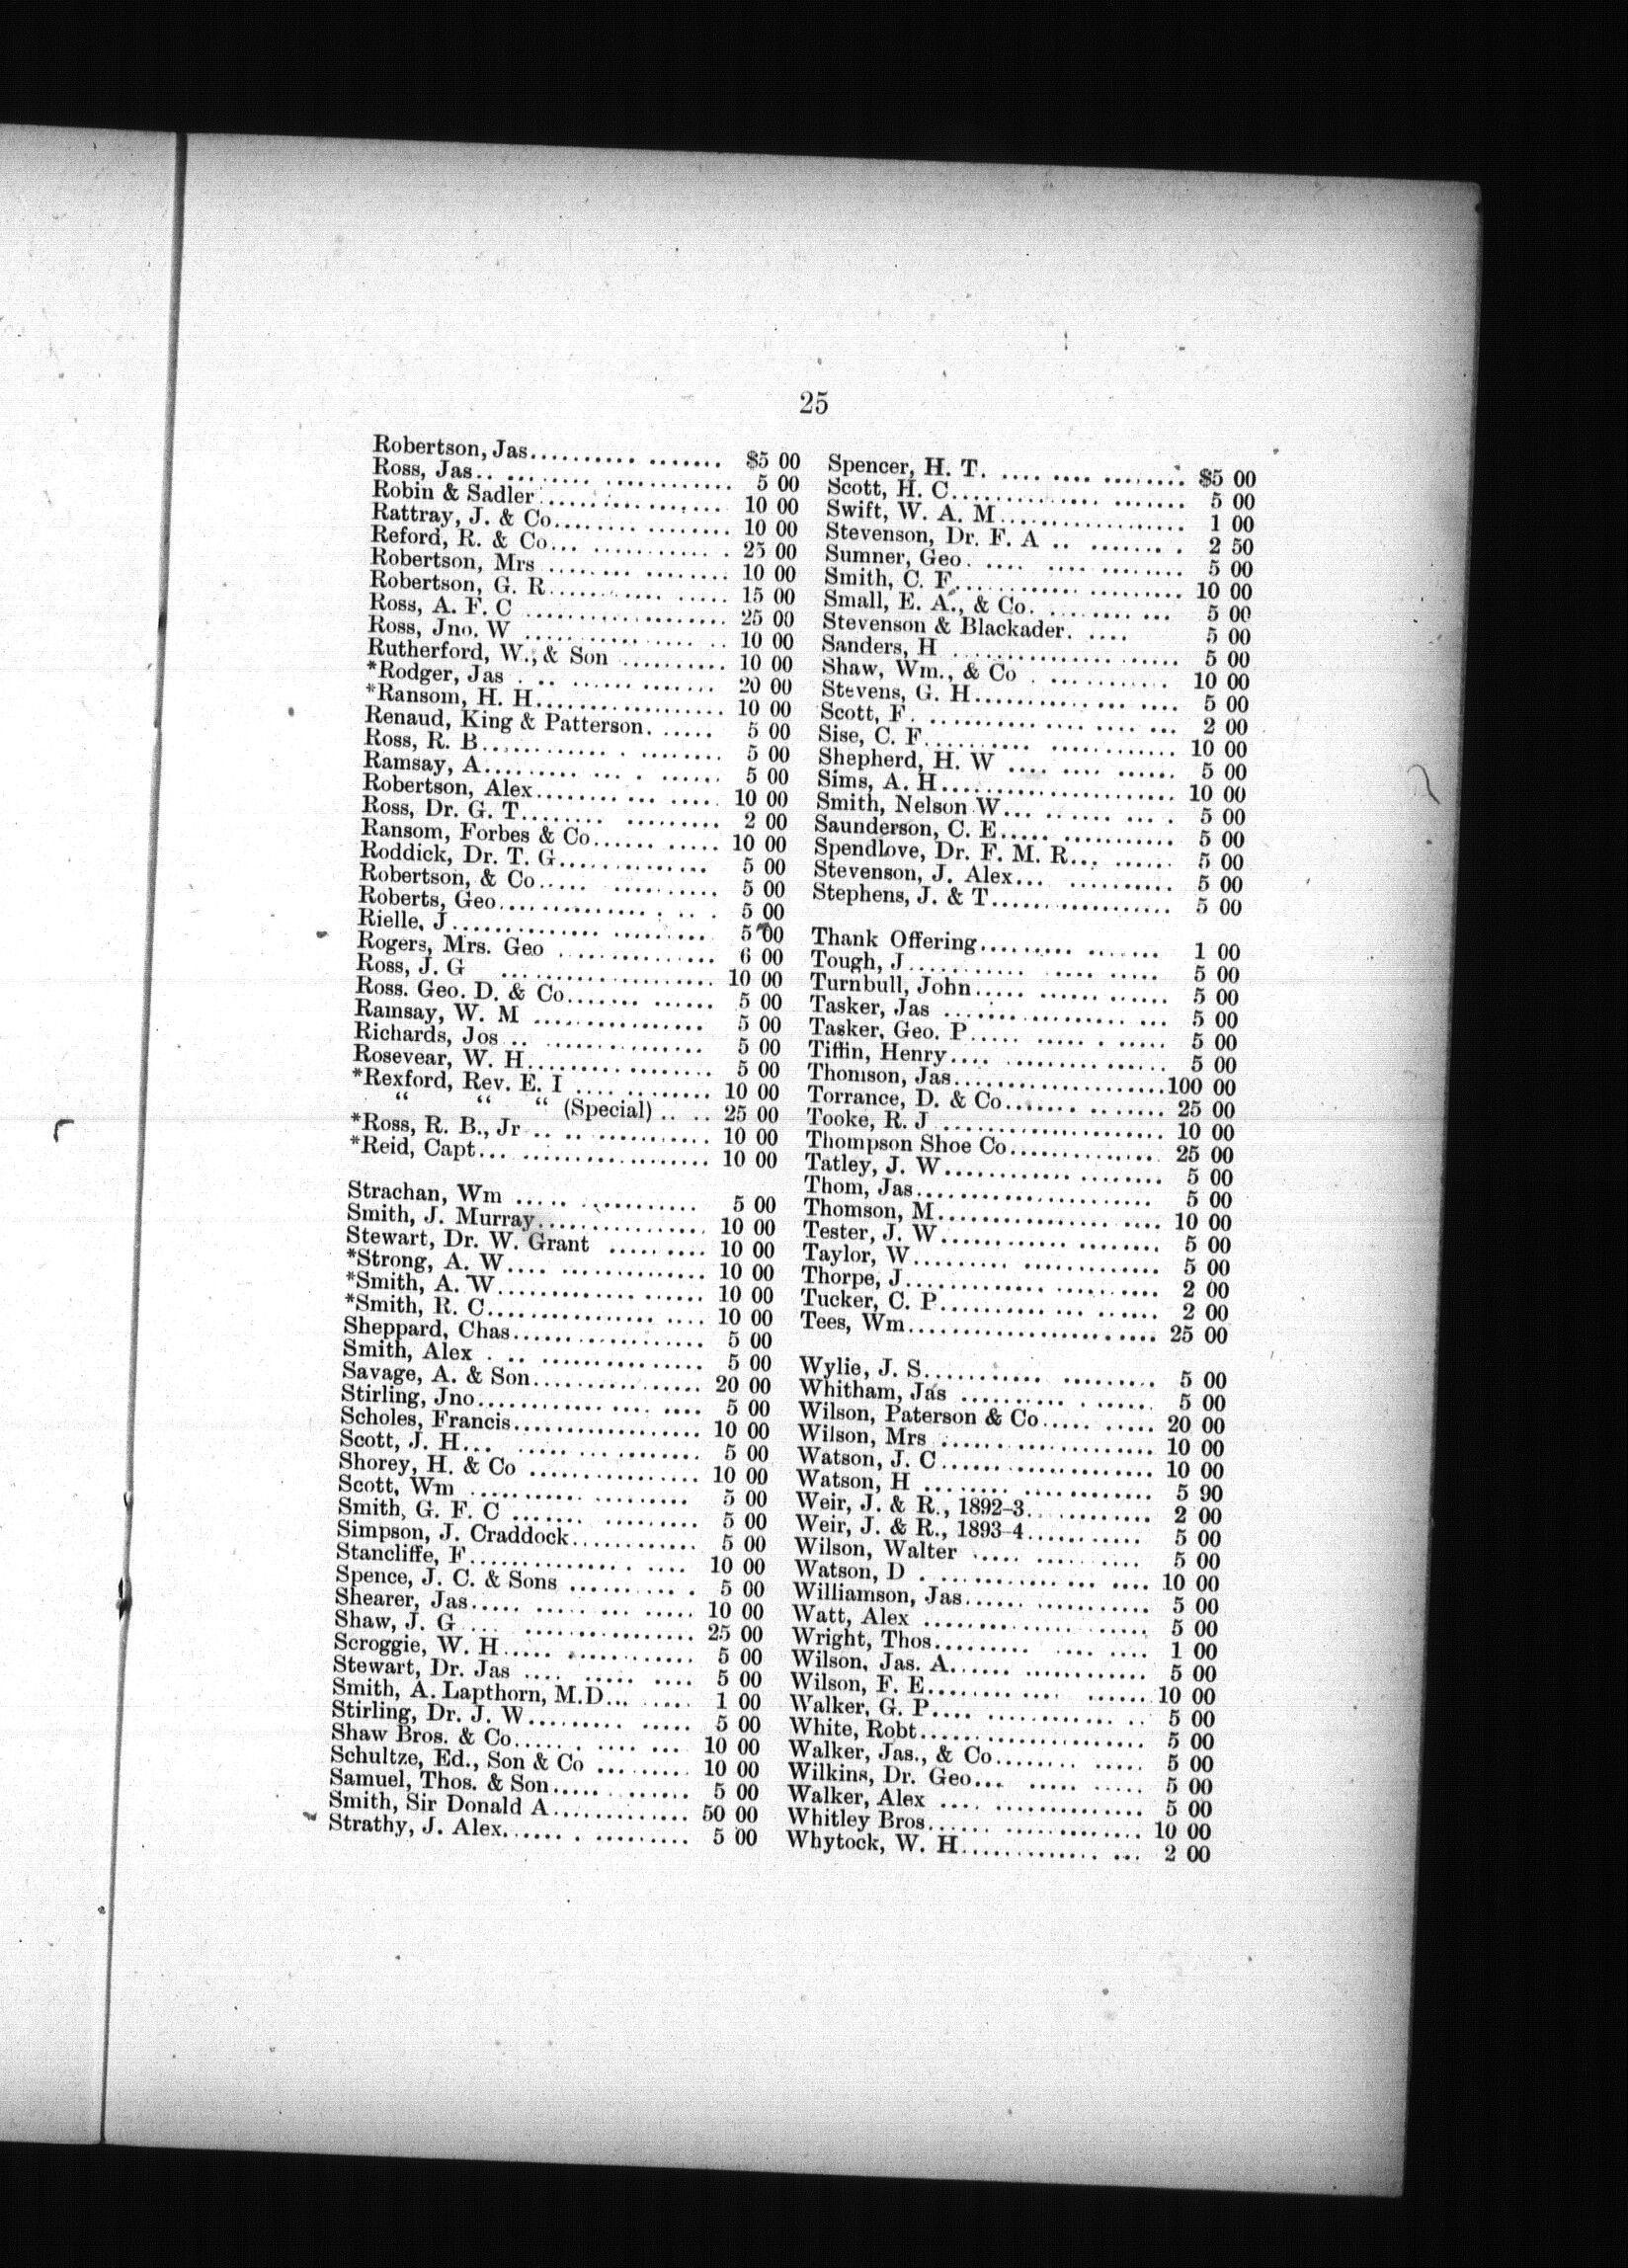 25
Robertson, Jas.......... ....... $5 00
Ross, Jas.. ... ...... ............ 5 00
Robin & Sadler ................. 10 00
Rattray, J. & Co......... ........ 10 00
Reford, R. & Co... ............ . 25 00
Robertson, Mrs ........ ........ 10 00
Robertson, G. R........... ..... 15 00
Ross, A. F. C .................... 25 00
Ross, Jno. W ................. .. 10 00
Rutherford, W., & Son .......... 10 00
*Rodger, Jas . .. ...... ....... 20 00
*Ransom, H. H................... 10 00
Renaud, King & Patterson. ...... 5 00
Ross, R. B............ . ........ 5 00
Ramsay, A......... ... . ...... 5 00
Robertson, Alex........ ... ..... 10 00
Ross, Dr. G. T........ ......... 2 00
Ransom, Forbes & Co...... ..... 10 00
Roddick, Dr. T. G.............. 5 00
Robertson, & Co..... .......... 5 00
Roberts, Geo............... . .. . 5 00
Rielle, J.............. ......... 5 00
Rogers, Mrs. Geo .............. 6 00
Ross, J. G .................... 10 00
Ross. Geo. D. & Co....... ...... 5 00
Ramsay, W. M ................ 5 00
Richards, Jos .. ............... 5 00
Rosevear, W. H.................. 5 00
*Rexford, Rev. E. I ............. 10 00
“ “ “ (Special) .. .. 25 00
*Ross, R. B., Jr .. .. ........... 10 00
*Reid, Capt... .................. 10 00
Strachan, Wm ..... ........... 5 00
Smith, J. Murray................ 10 00
Stewart, Dr. W. Grant ......... 10 00
*Strong, A. W.... .............. 10 00
*Smith, A. W............... ...... 10 00
*Smith, R. C............... .... 10 00
Sheppard, Chas.................. 5 00
Smith, Alex . .. ............... 5 00
Savage, A. & Son................ 20 00
Stirling, Jno.............. ... .... 5 00
Scholes, Francis.................. 10 00
Scott, J. H... ..... ... ........ 5 00
Shorey, H. & Co ................ 10 00
Scott, Wm ........... ......... 5 00
Smith, G. F. C ....... ......... 5 00
Simpson, J. Craddock............ 5 00
Stancliffe, F............... . .... 10 00
Spence, J. C. & Sons .......... . 5 00
Shearer, Jas..... ..... ... ..... 10 00
Shaw, J. G .... ................ 25 00
Scroggie, W. H..... ............ 5 00
Stewart, Dr. Jas .... ..... .... 5 00
Smith, A. Lapthorn, M.D... ..... 1 00
Stirling, Dr. J. W......... ..... 5 00
Shaw Bros. & Co...... . .... ... 10 00
Schultze, Ed., Son & Co ......... 10 00
Samuel, Thos. & Son..... ....... 5 00
Smith, Sir Donald A............. 50 00
Strathy, J. Alex...... . ......... 5 00
Spencer, H. T. .... .... ........ $5 00
Scott, H. C............... ....... 5 00
Swift, W. A. M................... 1 00
Stevenson, Dr. F. A .. ....... . 2 50
Sumner, Geo. .... .... ........ 5 00
Smith, C. F............. ......... 10 00
Small, E. A., & Co. ......... ... 5 00
Stevenson & Blackader. .... 5 00
Sanders, H ................ ..... 5 00
Shaw, Wm., & Co . ............ 10 00
Stevens, G. H............ ... .... 5 00
Scott, F. ............. .... ... 2 00
Sise, C. F......... ... ............ 10 00
Shepherd, H. W .... .... ...... 5 00
Sims, A. H....................... 10 00
Smith, Nelson W... ...... ... . 5 00
Saunderson, C. E..... ........... 5 00
Spendlove, Dr. F. M. R... ...... 5 00
Stevenson, J. Alex... ........... 5 00
Stephens, J. & T.................. 5 00
Thank Offering......... ....... 1 00
Tough, J............ .... ..... 5 00
Turnbull, John..... ...... ...... 5 00
Tasker, Jas ................. ... 5 00
Tasker, Geo. P..... ..... . ..... 5 00
Tiffin, Henry.... ......... ...... 5 00
Thomson, Jas.....................100 00
Torrance, D. & Co....... ........ 25 00
Tooke, R. J ..................... 10 00
Thompson Shoe Co.............. 25 00
Tatley, J. W............ ......... 5 00
Thom, Jas....................... 5 00
Thomson, M................. .... 10 00
Tester, J. W............ ........ 5 00
Taylor, W......... ............. 5 00
Thorpe, J............. .......... 2 00
Tucker, C. P.......... ... ...... 2 00
Tees, Wm........................ 25 00
Wylie, J. S........... ......... 5 00
Whitham, Jas .......... . ...... 5 00
Wilson, Paterson & Co..... ..... 20 00
Wilson, Mrs .................... 10 00
Watson, J. C.................... 10 00
Watson, H ........ ............ 5 90
Weir, J. & R., 1892-3............ 2 00
Weir, J. & R., 1893-4........... 5 00
Wilson, Walter ..... ...... .... 5 00
Watson, D . ............ ... .... 10 00
Williamson, Jas...... ........... 5 00
Watt, Alex ..................... 5 00
Wright, Thos......... .... .... 1 00
Wilson, Jas. A...... ............ 5 00
Wilson, F. E......... .... ......10 00
Walker, G. P.... ............ .. 5 00
White, Robt...................... 5 00
Walker, Jas., & Co........ ..... 5 00
Wilkins, Dr. Geo... ..... ..... 5 00
Walker, Alex .... .............. 5 00
Whitley Bros...... .............. 10 00
Whytock, W. H.............. ... 2 00